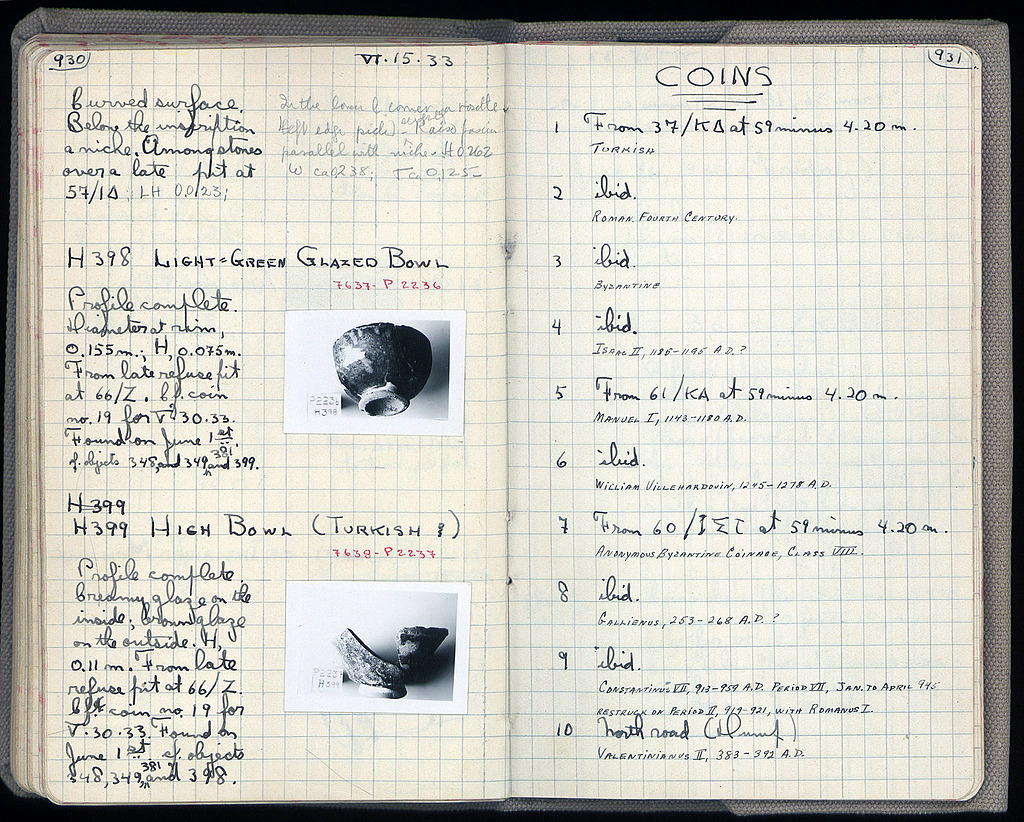 930
VI.15.33
Curved surface.
Below the inscription
a niche. Among stones
over a late pit at
57/ΙΔ; LH 0.0123;
In the lower l. corner, a rosette
left edge
parallel with niche. H 0.262
W ca 0.238; T ca 0.125
H 398 LIGHT-GREEN GLAZED BOWL
7637- P 2236
Profile complete.
Diameter at rim,
0.155 m.; H, 0.075 m.
From late refuse pit
at 66/Z. Cf. coin
no. 19 for V 30.33.
Found on June 1st.
cf. objects 348, and 349, 381 and 399.
P2236
H398
H 399
H 399 HIGH BOWL (TURKISH ?)
7638- P 2237
Profile complete.
Creamy glaze on the
inside; brown glaze
on the outside. H,
0.11 m. From late
refuse pit at 66/Z.
Cf. coin no. 19 for
V.30.33. Found on
June 1st cf. objects
348, 349, 381 and 398.
P2237
H399
931
COINS
1 From 37/ΚΔ at 59 minus 4.20 m.
TURKISH
2 ibid.
ROMAN. FOURTH CENTURY.
3 ibid.
BYZANTINE
4 ibid.
ISAAC II, 1185-1195 A.D.?
5 From 61/ΚΑ at 59 minus 4.20 m.
MANUEL I, 1143-1180 A.D.
6 ibid.
WILLIAM VILLEHARDOUIN, 1245-1278 A.D.
7 From 60/ΙΣΤ at 59 minus 4.20 m.
ANONYMOUS BYZANTINE COINAGE, CLASS VIII.
8 ibid.
GALLIENUS, 253-268 A.D.?
9 ibid.
CONSTANTINUS VII, 913-959 A.D. PERIOD VII, JAN. TO APRIL 945
RESTRUCK ON PERIOD II, 919-921, WITH ROMANUS I.
10 North road
VALENTINIANUS II, 383-392 A.D.